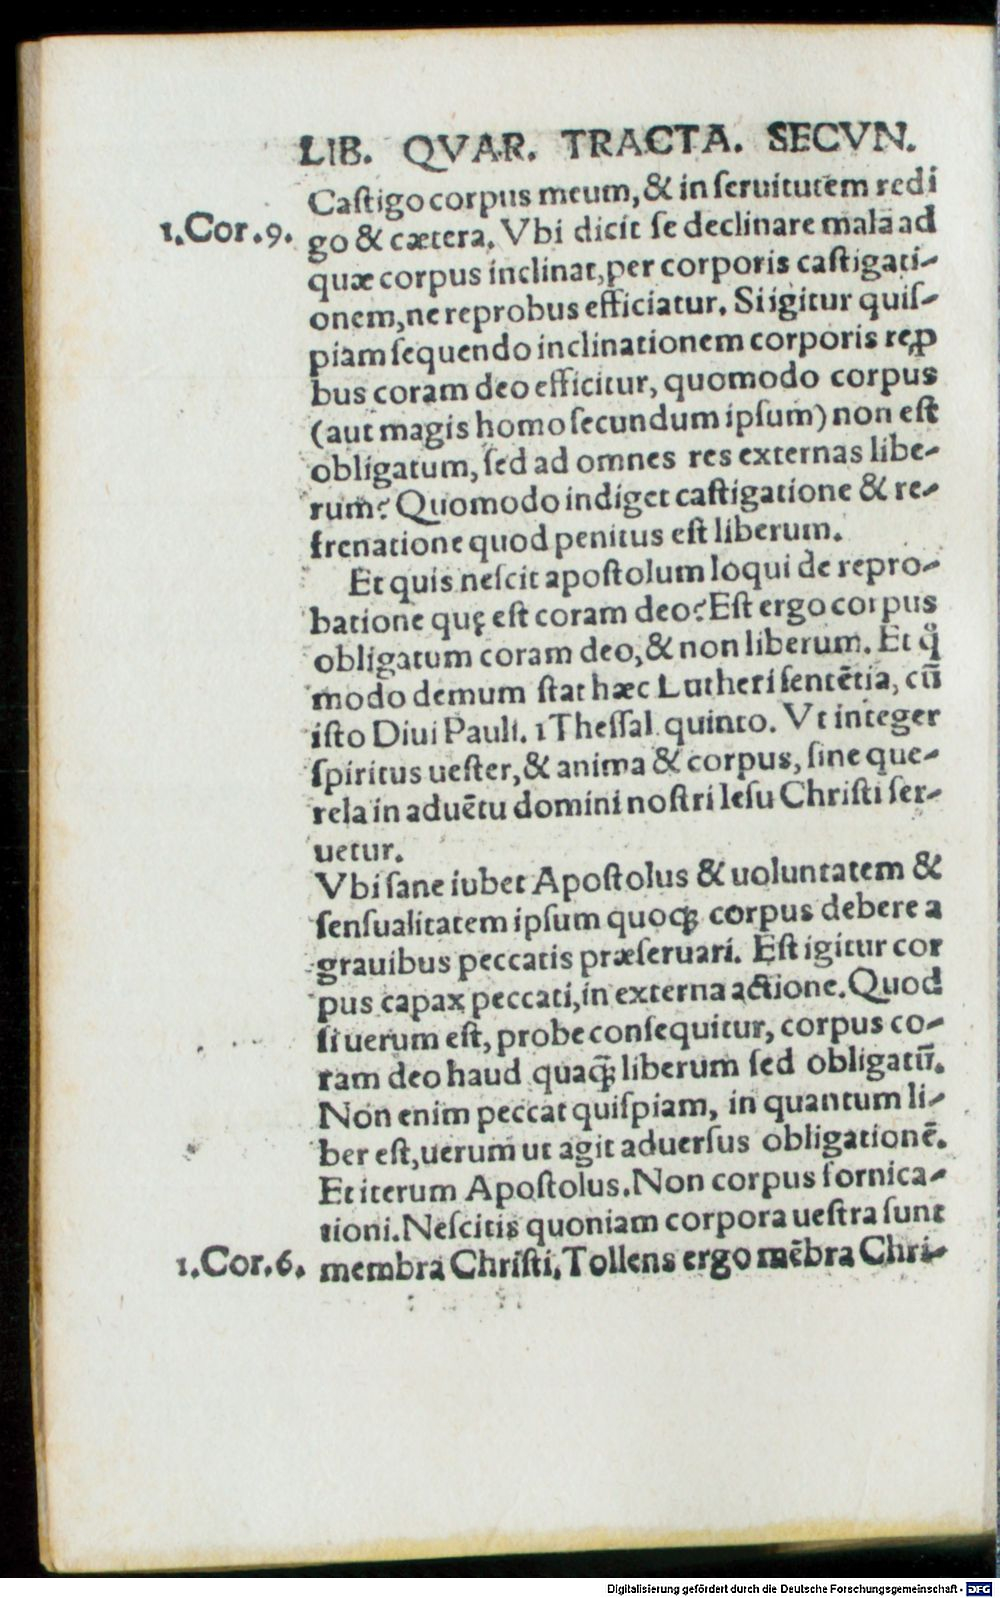 LIB. QVAR. TRACTA. SECVN.
Castigo corpus meum, & in seruitutem redi
1.Cor.9. go & cætera. Vbi dicit se declinare mala ad
quæ corpus inclinat, per corporis castigati-
onem, ne reprobus efficiatur. Si igitur quis-
piam sequendo inclinationem corporis reꝓ
bus coram deo efficitur, quomodo corpus
(aut magis homo secundum ipsum) non est
obligatum, sed ad omnes res externas libe-
rum? Quomodo indiget castigatione & re-
frenatione quod penitus est liberum.
Et quis nescit apostolum loqui de repro-
batione quę est coram deo? Est ergo corpus
obligatum coram deo, & non liberum. Et qͦ
modo demum stat hæc Lutheri sentētia, cū
isto Diui Pauli. 1 Thessal. quinto. Vt integer
spiritus uester, & anima & corpus, sine que-
rela in aduētu domini nostri Iesu Christi ser-
uetur.
Vbi sane iubet Apostolus & uoluntatem &
sensualitatem ipsum quoqꝫ corpus debere a
grauibus peccatis præseruari. Est igitur cor
pus capax peccati, in externa actione. Quod
si uerum est, probe consequitur, corpus co-
ram deo haud quaqꝫ̃ liberum sed obligatū.
Non enim peccat quispiam, in quantum li-
ber est, uerum ut agit aduersus obligationē.
Et iterum Apostolus. Non corpus fornica-
tioni. Nescitis quoniam corpora uestra sunt
1.Cor.6. membra Christi. Tollens ergo mēbra Chri-
Digitalisierung gefördert durch die Deutsche Forschungsgemeinschaft - DFG